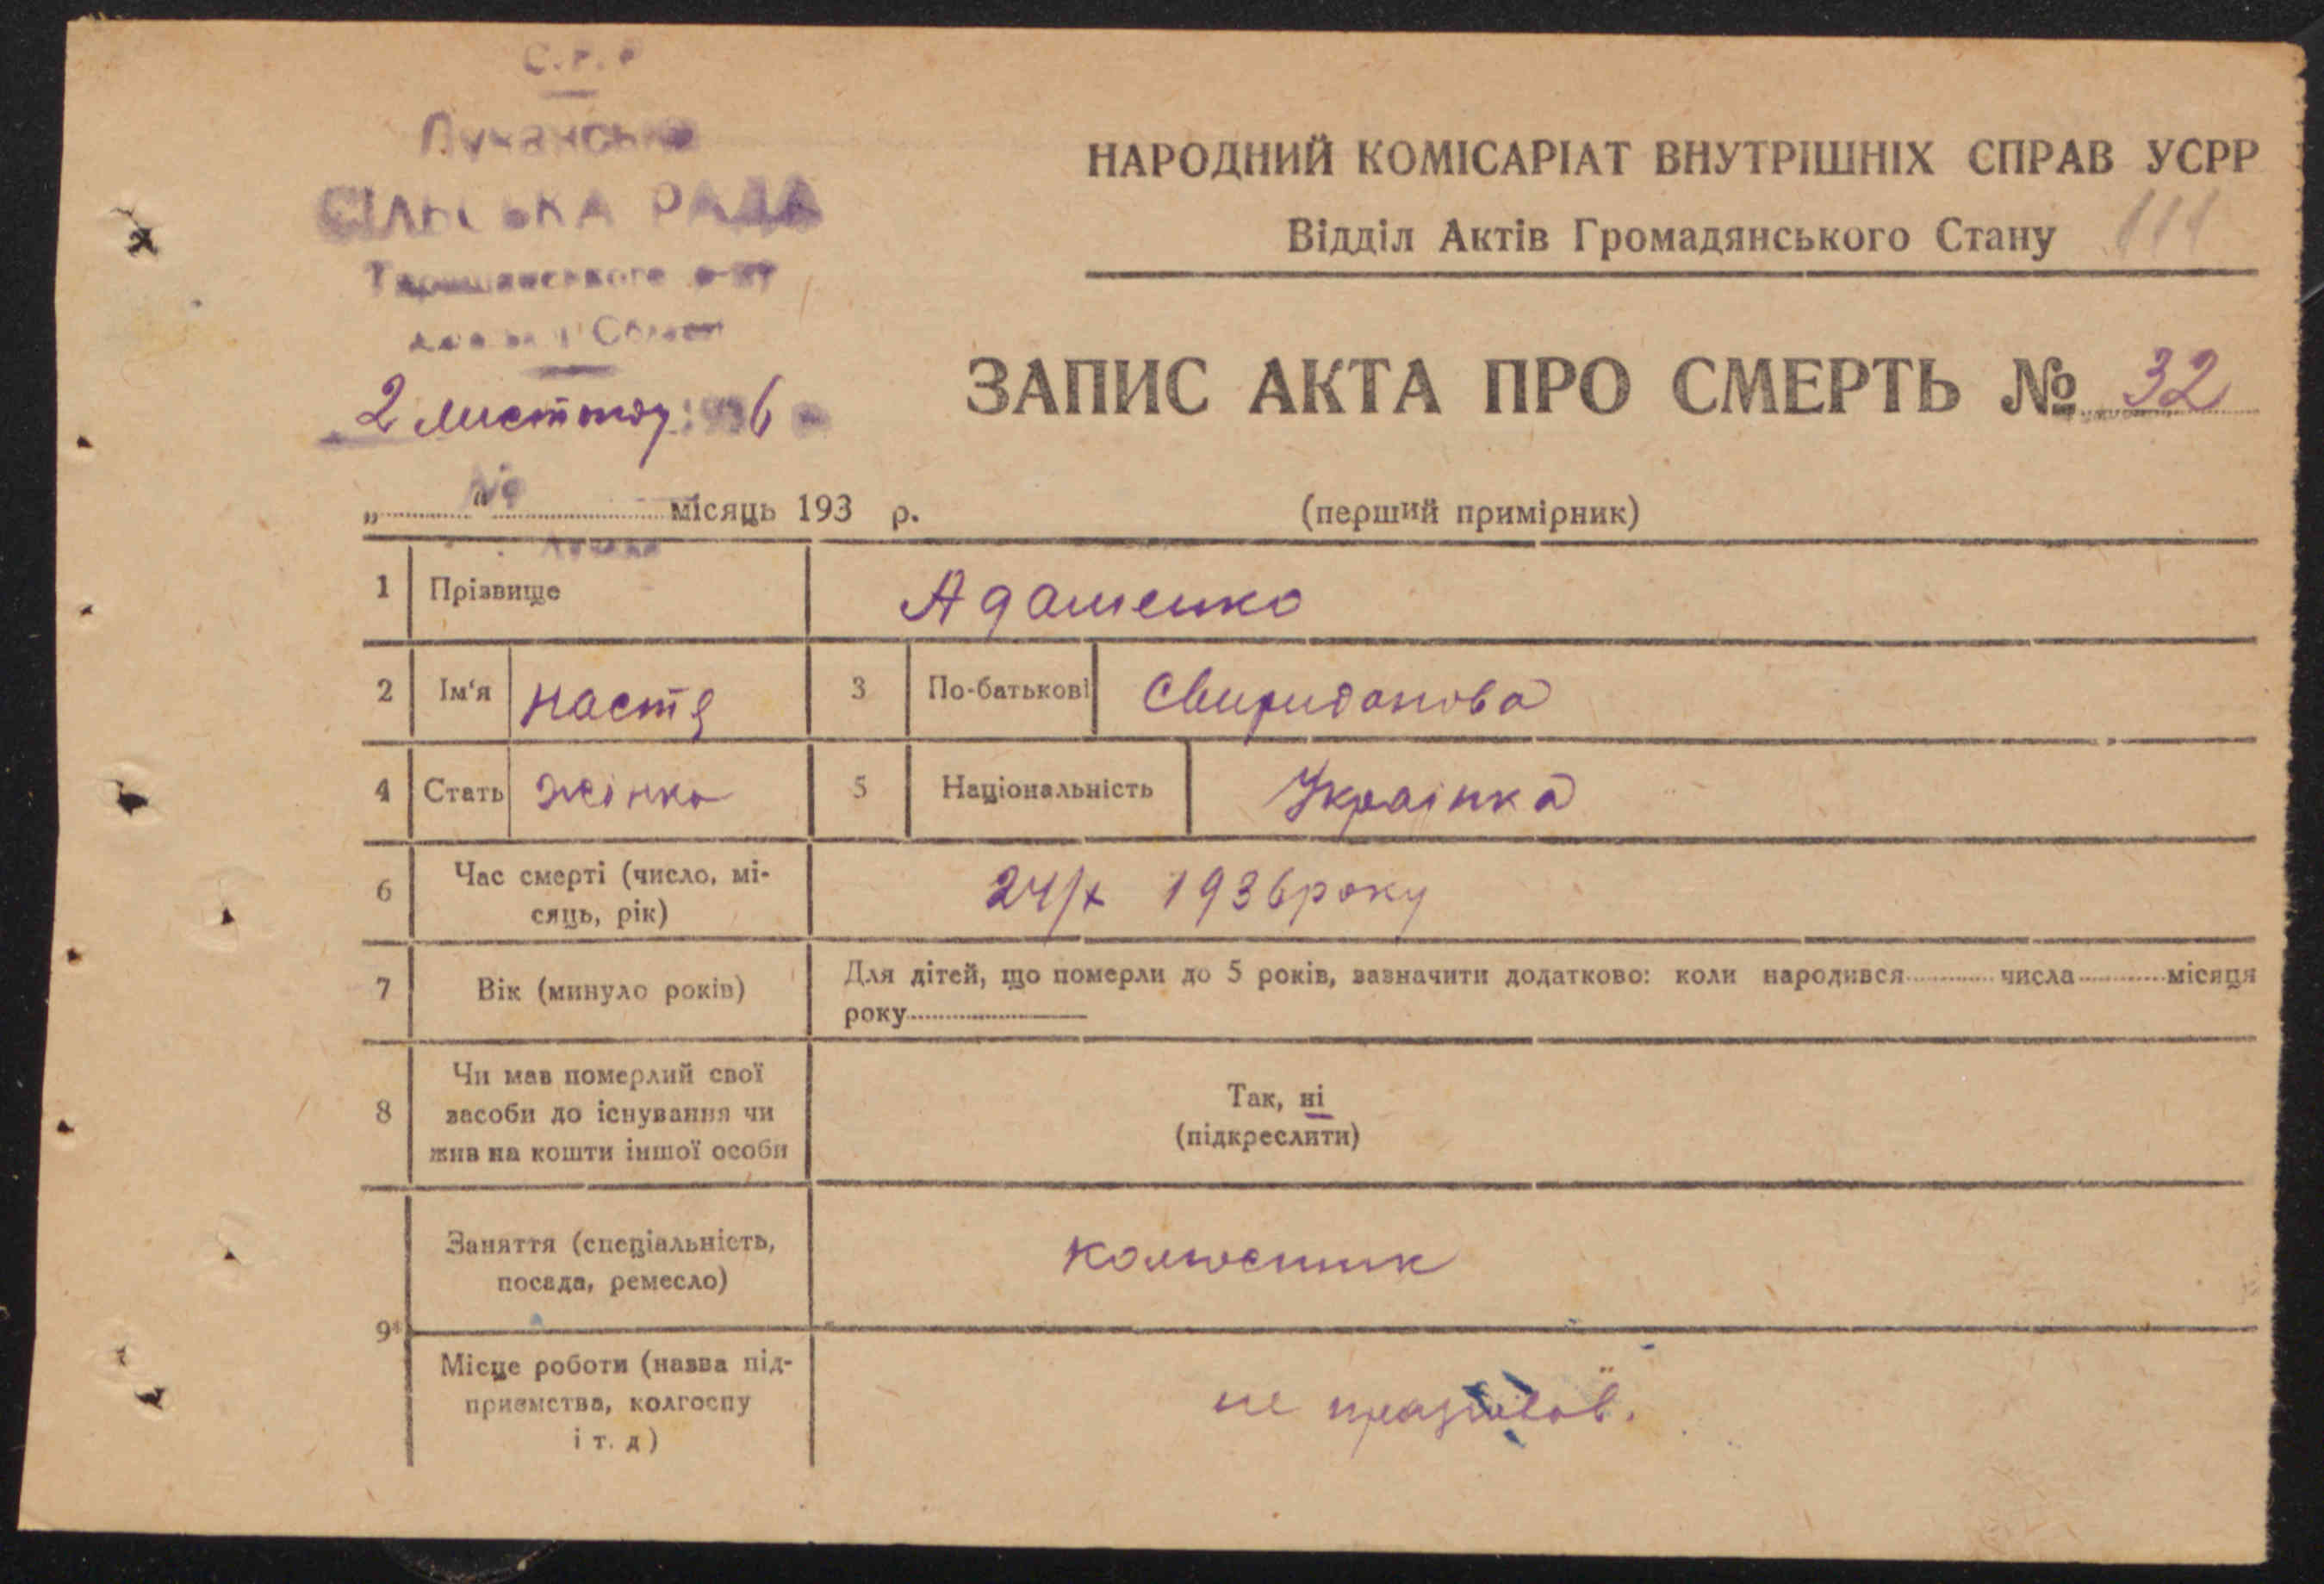 СІЛЬСЬКА РАДА
2 листопаду 1936
НАРОДНИЙ КОМІСАРІАТ ВНУТРІШНІХ СПРАВ УСРР
Відділ Актів Громадянського Стану 111
ЗАПИС АКТА ПРО СМЕРТЬ № 32
„ “ місяць 193 р.
(перший примірник)
1 Прізвище Адаменко
2 Ім‘я Настя 3 По-батькові Свиридонова
4 Стать жінка 5 Національність Українка
6 Час смерті (число, мі-
сяць, рік) 24/х 1936 року
7 Вік (минуло років) Для дітей, що померли до 5 років, зазначити додатково: коли народився числа місяця
року
8 Чи мав померлий свої
засоби до існування чи
жив на кошти іншої особи
Так, ні
(підкреслити)
9 Заняття (спеціальність,
посада, ремесло)
Місце роботи (назва під-
приємства, колгоспу
і т. д)
не